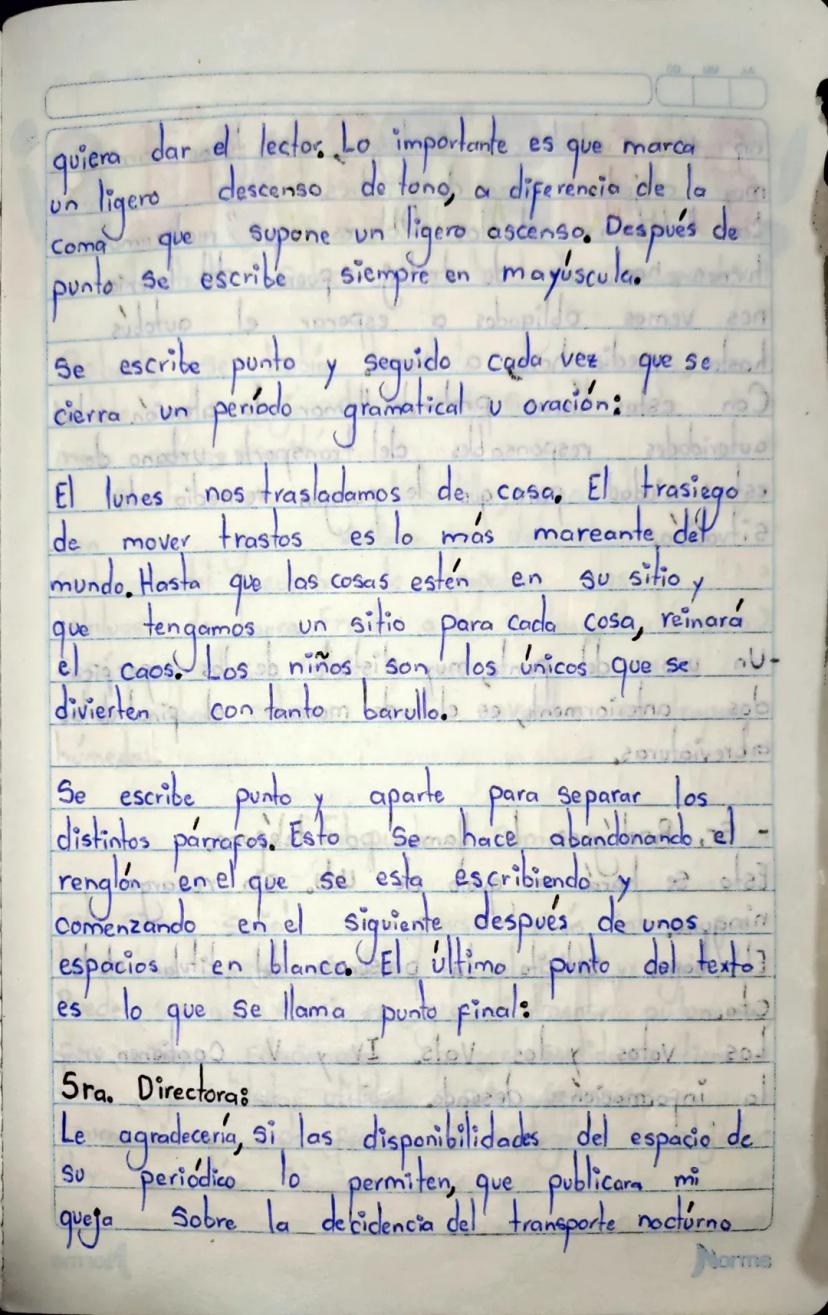 quiera dar el lector. Lo importante es que marca
un ligero descenso de tono, a diferencia de la
coma que supone un ligero ascenso. Después de
punto se escribe siempre en mayúscula.
Se escribe punto y seguido cada vez que se
cierra un período gramatical u oración:
El lunes nos trasladamos de casa. El trasiego
de mover trastos es lo más mareante del
mundo. Hasta que las cosas estén en su sitio y
que tengamos un sitio para cada cosa, reinará
el caos. Los niños son los únicos que se
divierten con tanto barullo.
Se escribe punto y aparte para separar los
distintos párrafos. Esto se hace abandonando el
renglón en el que se esta escribiendo y
comenzando en el siguiente después de unos
espacios en blanco. El último punto del texto
es lo que se llama punto final:
Sra. Directora:
Le agradecería, si las disponibilidades del espacio de
su periódico lo permiten, que publicara mi
queja sobre la decidencia del transporte noctúrno
Norma